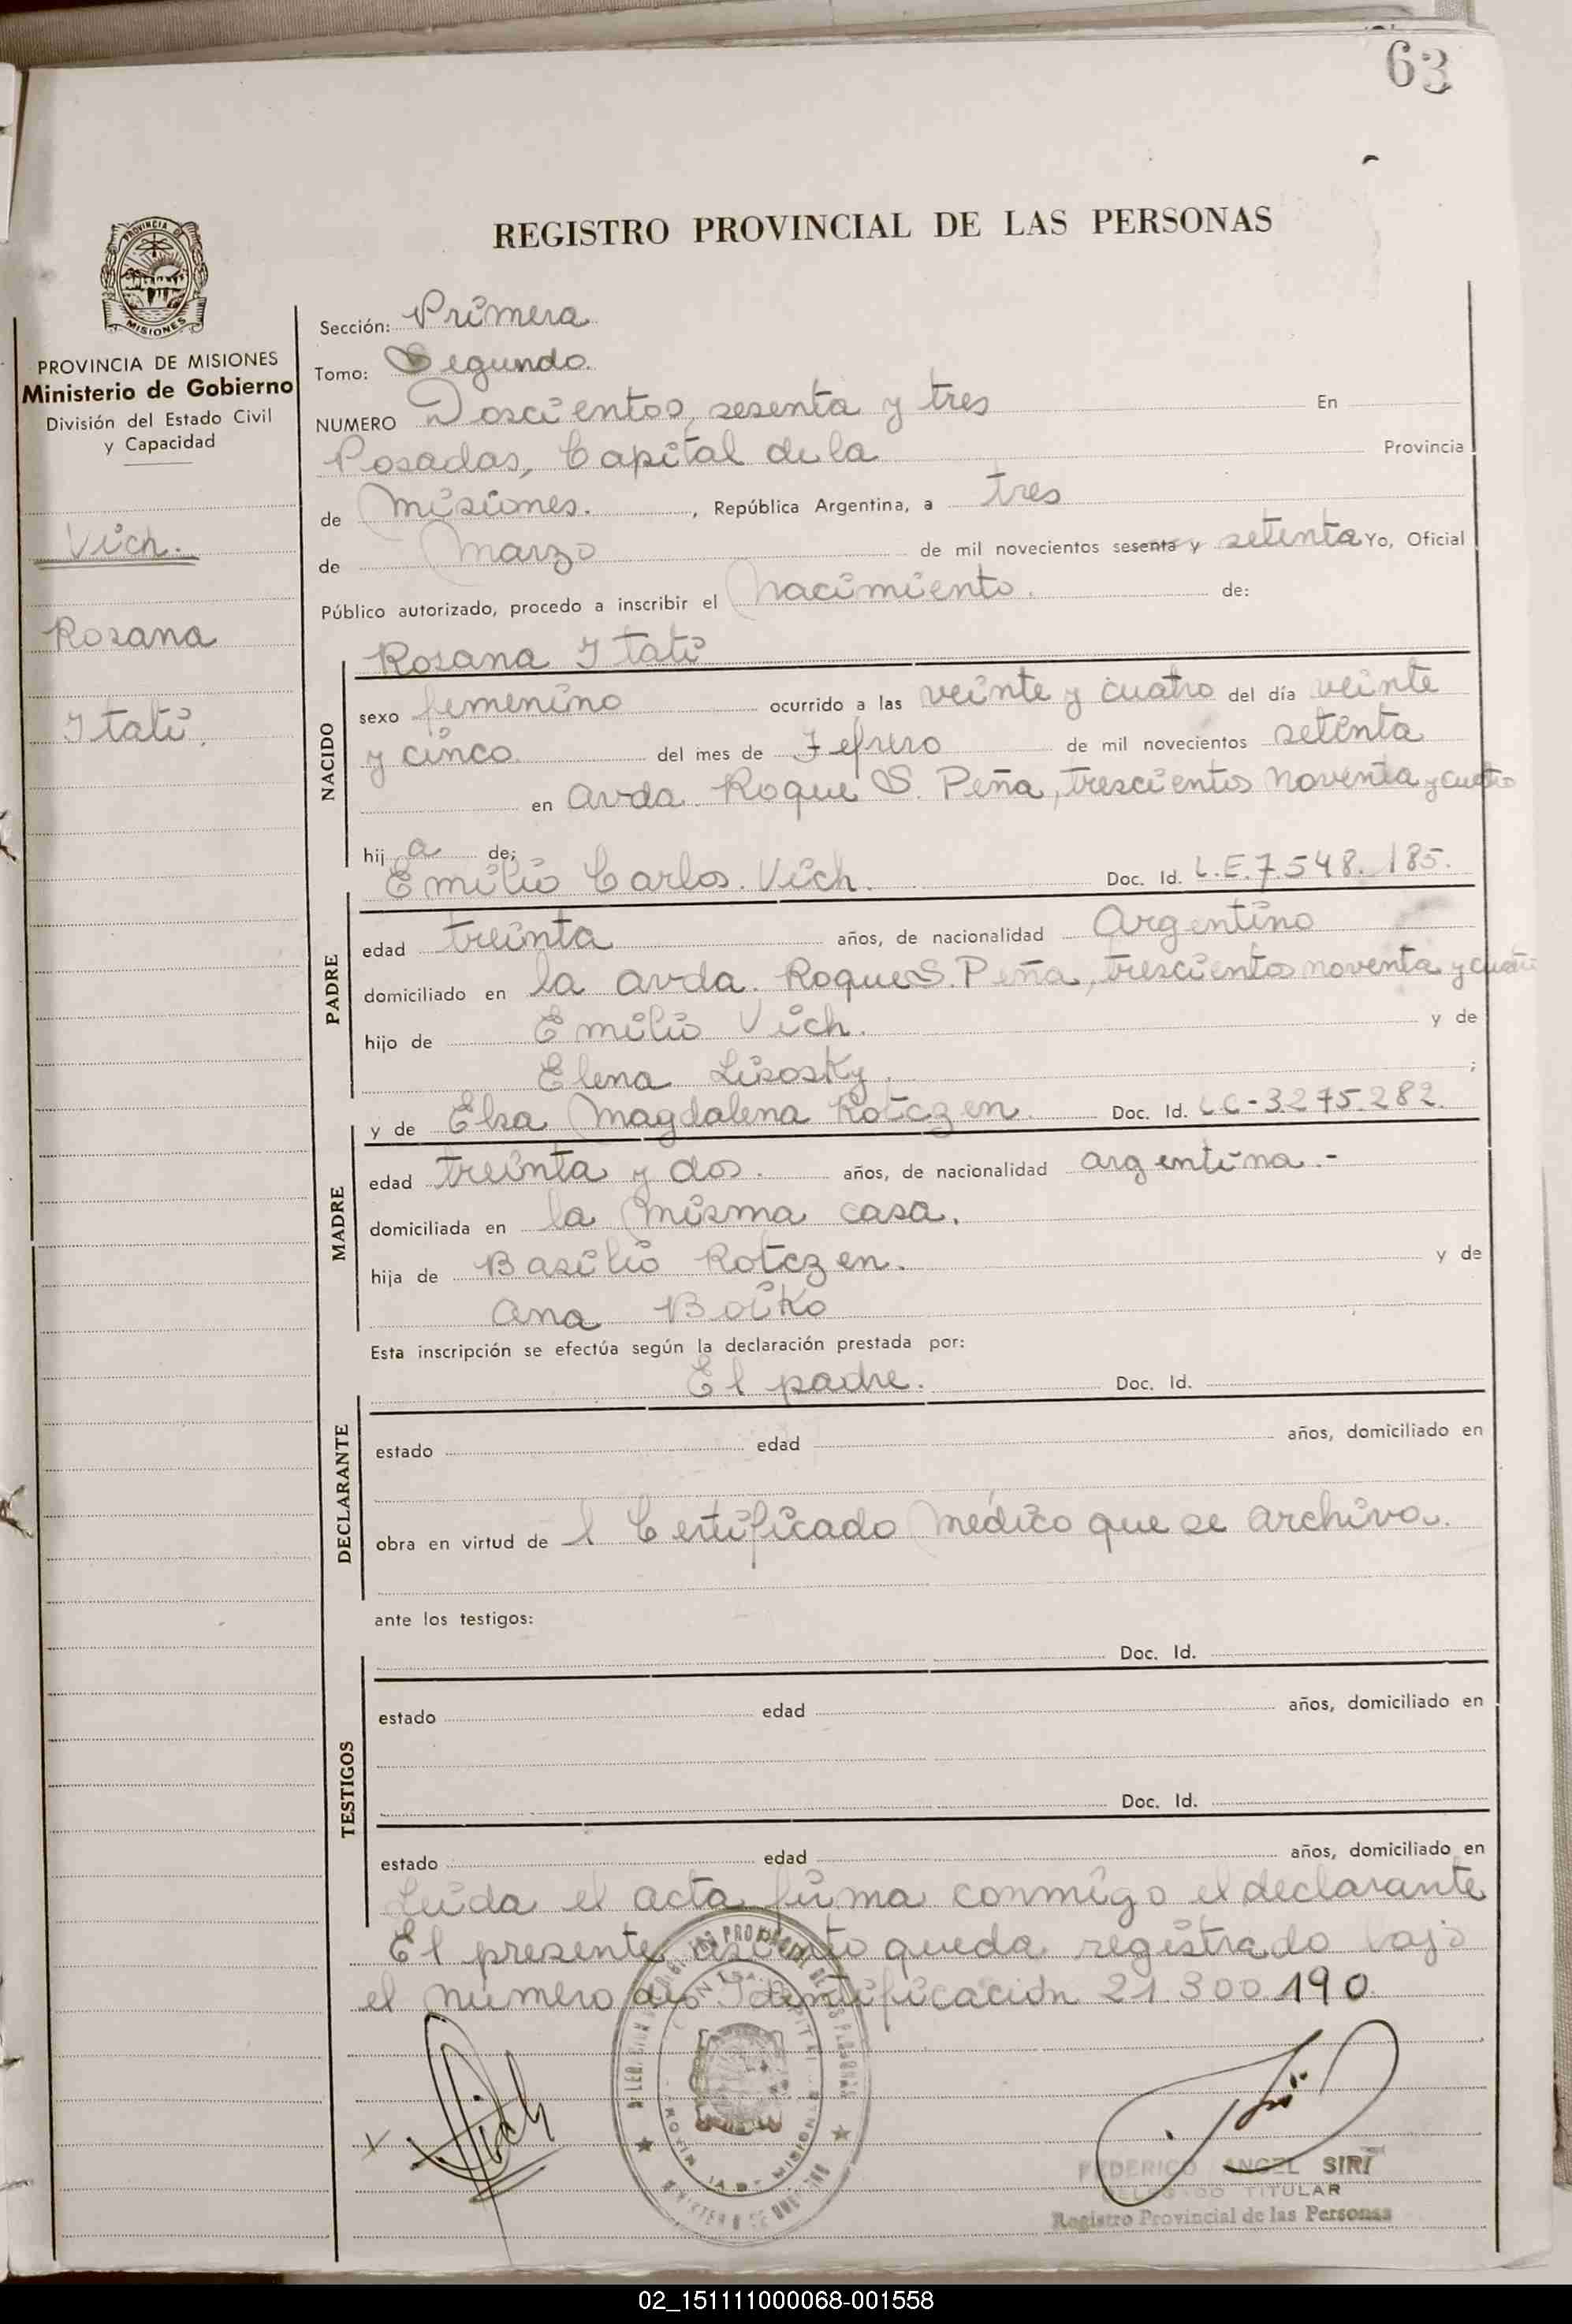 63
REGISTRO PROVINCIAL DE LAS PERSONAS
PROVINCIA DE MISIONES
Ministerio de Gobierno
División del Estado Civil
y Capacidad
Vich.
Rosana
Itatí.
Sección: Primera
Tomo: Segundo.
NUMERO Doscientos, sesenta y tres En
Posadas, Capital de la Provincia
de Misiones. , República Argentina, a tres
de Marzo de mil novecientos sesenta y setenta Yo, Oficial
Público autorizado, procedo a inscribir el Nacimiento. de:
Rosana Itatí
NACIDO
sexo femenino ocurrido a las veinte y cuatro del día veinte
y cinco. del mes de Febrero de mil novecientos setenta
en avda. Roque S. Peña, trescientos noventa y cuatro
hij a de;
Emilio Carlos. Vich. Doc. Id. L.E.7.548.185.
PADRE
edad treinta años, de nacionalidad Argentino
domiciliado en la avda. Roque S. Peña, trescientos noventa y cuatro
hijo de Emilio Vich. y de
Elena Lisosky. ;
y de Elsa Magdalena Rotczen. Doc. Id. L.C-3.275.282.
MADRE
edad treinta y dos. años, de nacionalidad argentina.-
domiciliada en la misma casa.
hija de Basilio Rotczen. y de
Ana Boiko
Esta inscripción se efectúa según la declaración prestada por:
El padre. Doc. Id.
DECLARANTE
estado edad años, domiciliado en
obra en virtud de l Certificado Médico que se archiva.
ante los testigos:
Doc. Id.
TESTIGOS
estado edad años, domiciliado en
Doc. Id.
estado edad años, domiciliado en
Leída el acta firma conmigo el declarante
El presente asiento queda registrado bajo
el número de Identificación 21.300.190.
Vich
FEDERICO ANGEL SIRI
DELEGADO TITULAR
Registro Provincial de las Personas
02_151111000068-001558